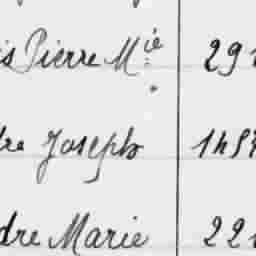 is Pierre M^ie 29
dre Joseph 1h5
dre Marie 22